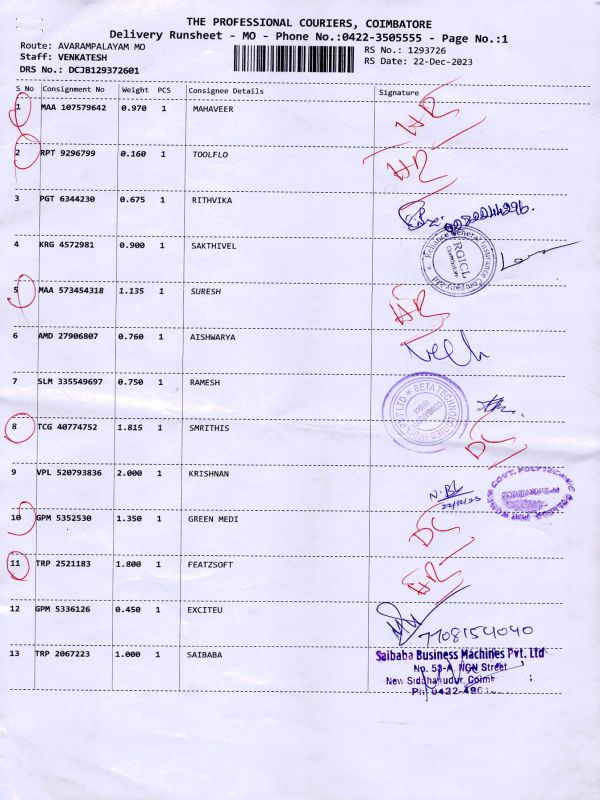 THE PROFESSIONAL COURIERS, COIMBATORE
Delivery Runsheet - MO - Phone No.:0422-3505555 - Page No.:1
Route: AVARAMPALAYAM MO
RS No.: 1293726
Staff: VENKATESH
RS Date: 22-Dec-2023
DRS No.: DCJB129372601
S No Consignment No Weight PCS Consignee Details Signature
1 MAA 107579642 0.970 1 MAHAVEER
2 RPT 9296799 0.160 1 TOOLFLO
3 PGT 6344230 0.675 1 RITHVIKA
4 KRG 4572981 0.900 1 SAKTHIVEL Reliance General Insurance Company Ltd RGICL
5 MAA 573454318 1.135 1 SURESH
6 AMD 27906807 0.760 1 AISHWARYA
7 SLM 335549697 0.750 1 RAMESH BETA TECHNOLOGIES
8 TCG 40774752 1.815 1 SMRITHIS DC
9 VPL 520793836 2.000 1 KRISHNAN 22/12/23 GOVT. POLYTECHNIC
10 GPM 5352530 1.350 1 GREEN MEDI DC
11 TRP 2521183 1.800 1 FEATZSOFT
12 GPM 5336126 0.450 1 EXCITEU 7708154040
13 TRP 2067223 1.000 1 SAIBABA
Saibaba Business Machines Pvt. Ltd
No. 53-A, NGN Street
New Siddhanudur, Coimt
Ph: 0422-496